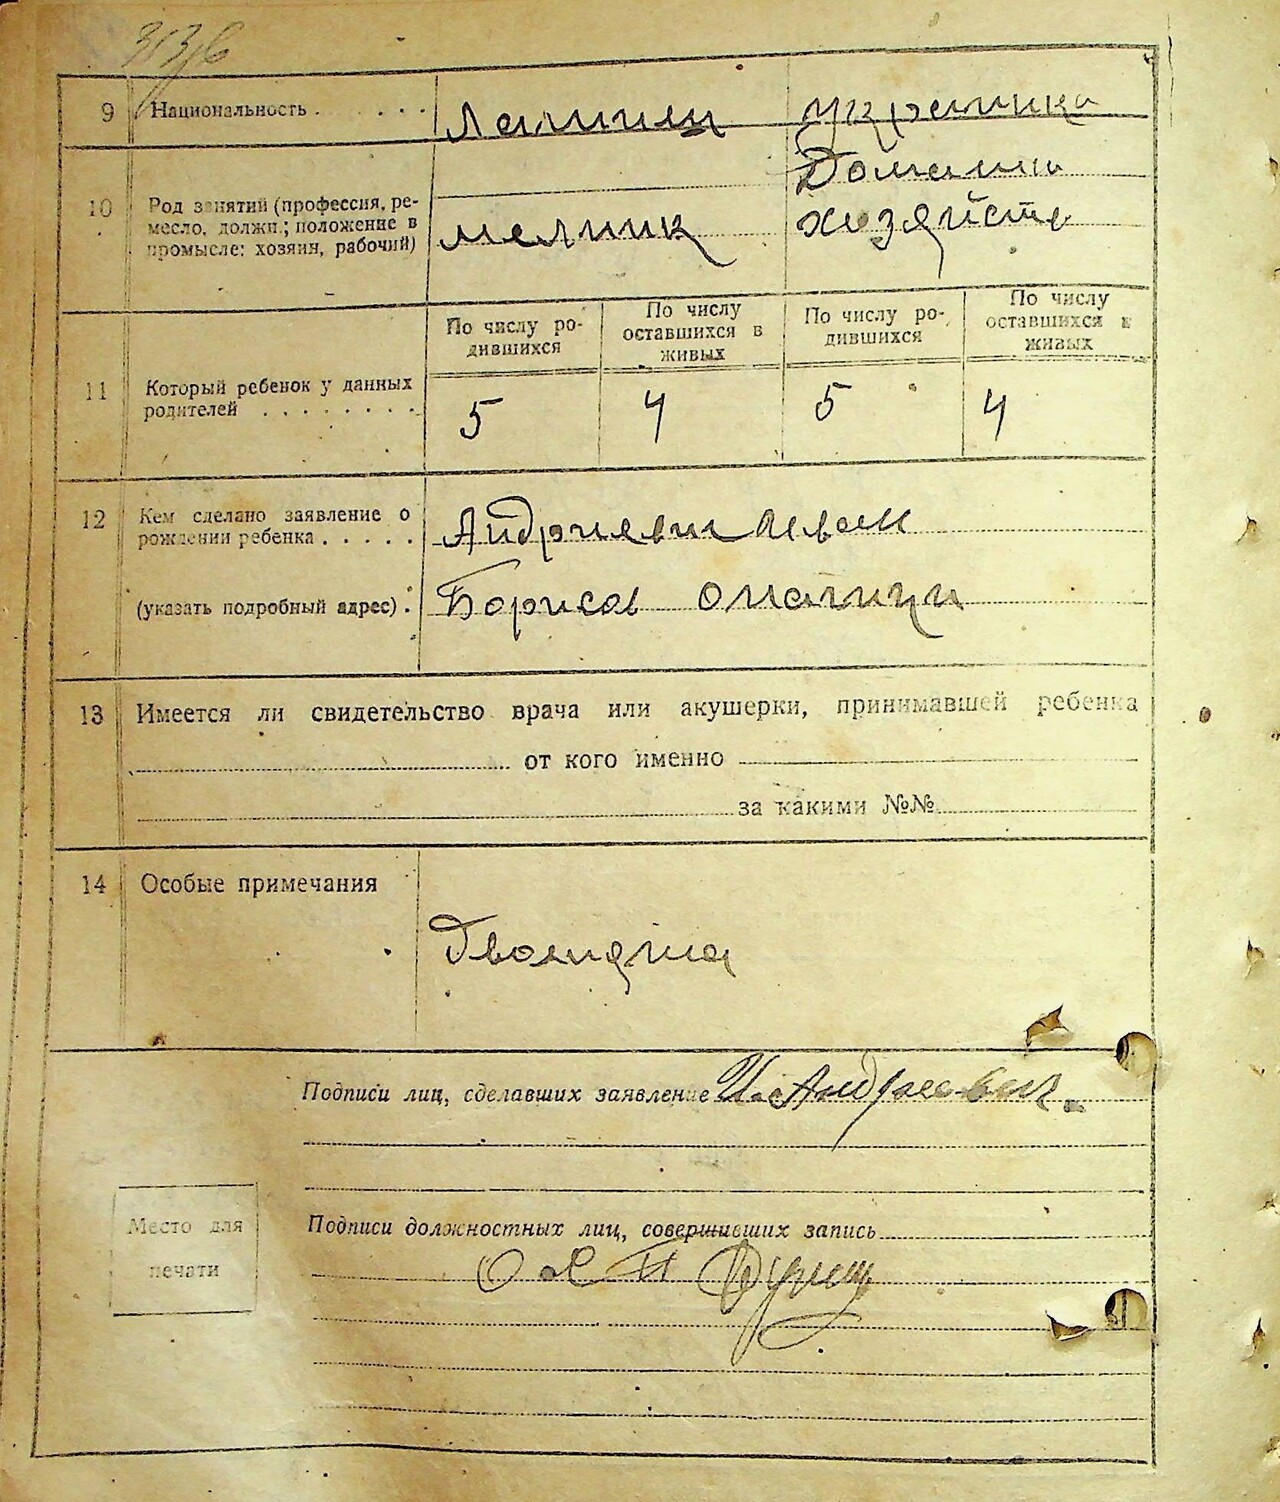 3136
9 Национальность . . . . . украинка
Домашн
10 Род занятий (профессия, ре-
месло, должн.; положение в
промысле: хозяин, рабочий) мельник хозяйств
11 Который ребенок у данных
родителей . . . . . . . .
По числу ро-
дившихся
По числу
оставшихся в
живых
По числу ро-
дившихся
По числу
оставшихся в
живых
5 4 5 4
12 Кем сделано заявление о
рождении ребенка . . . . . Андриевич Иван
(указать подробный адрес) . Борисов
13 Имеется ли свидетельство врача или акушерки, принимавшей ребенка
от кого именно
за какими №№
14 Особые примечания
Двойняша
Подписи лиц, сделавших заявление И. Андриевич.
Место для
печати
Подписи должностных лиц, совершивших запись